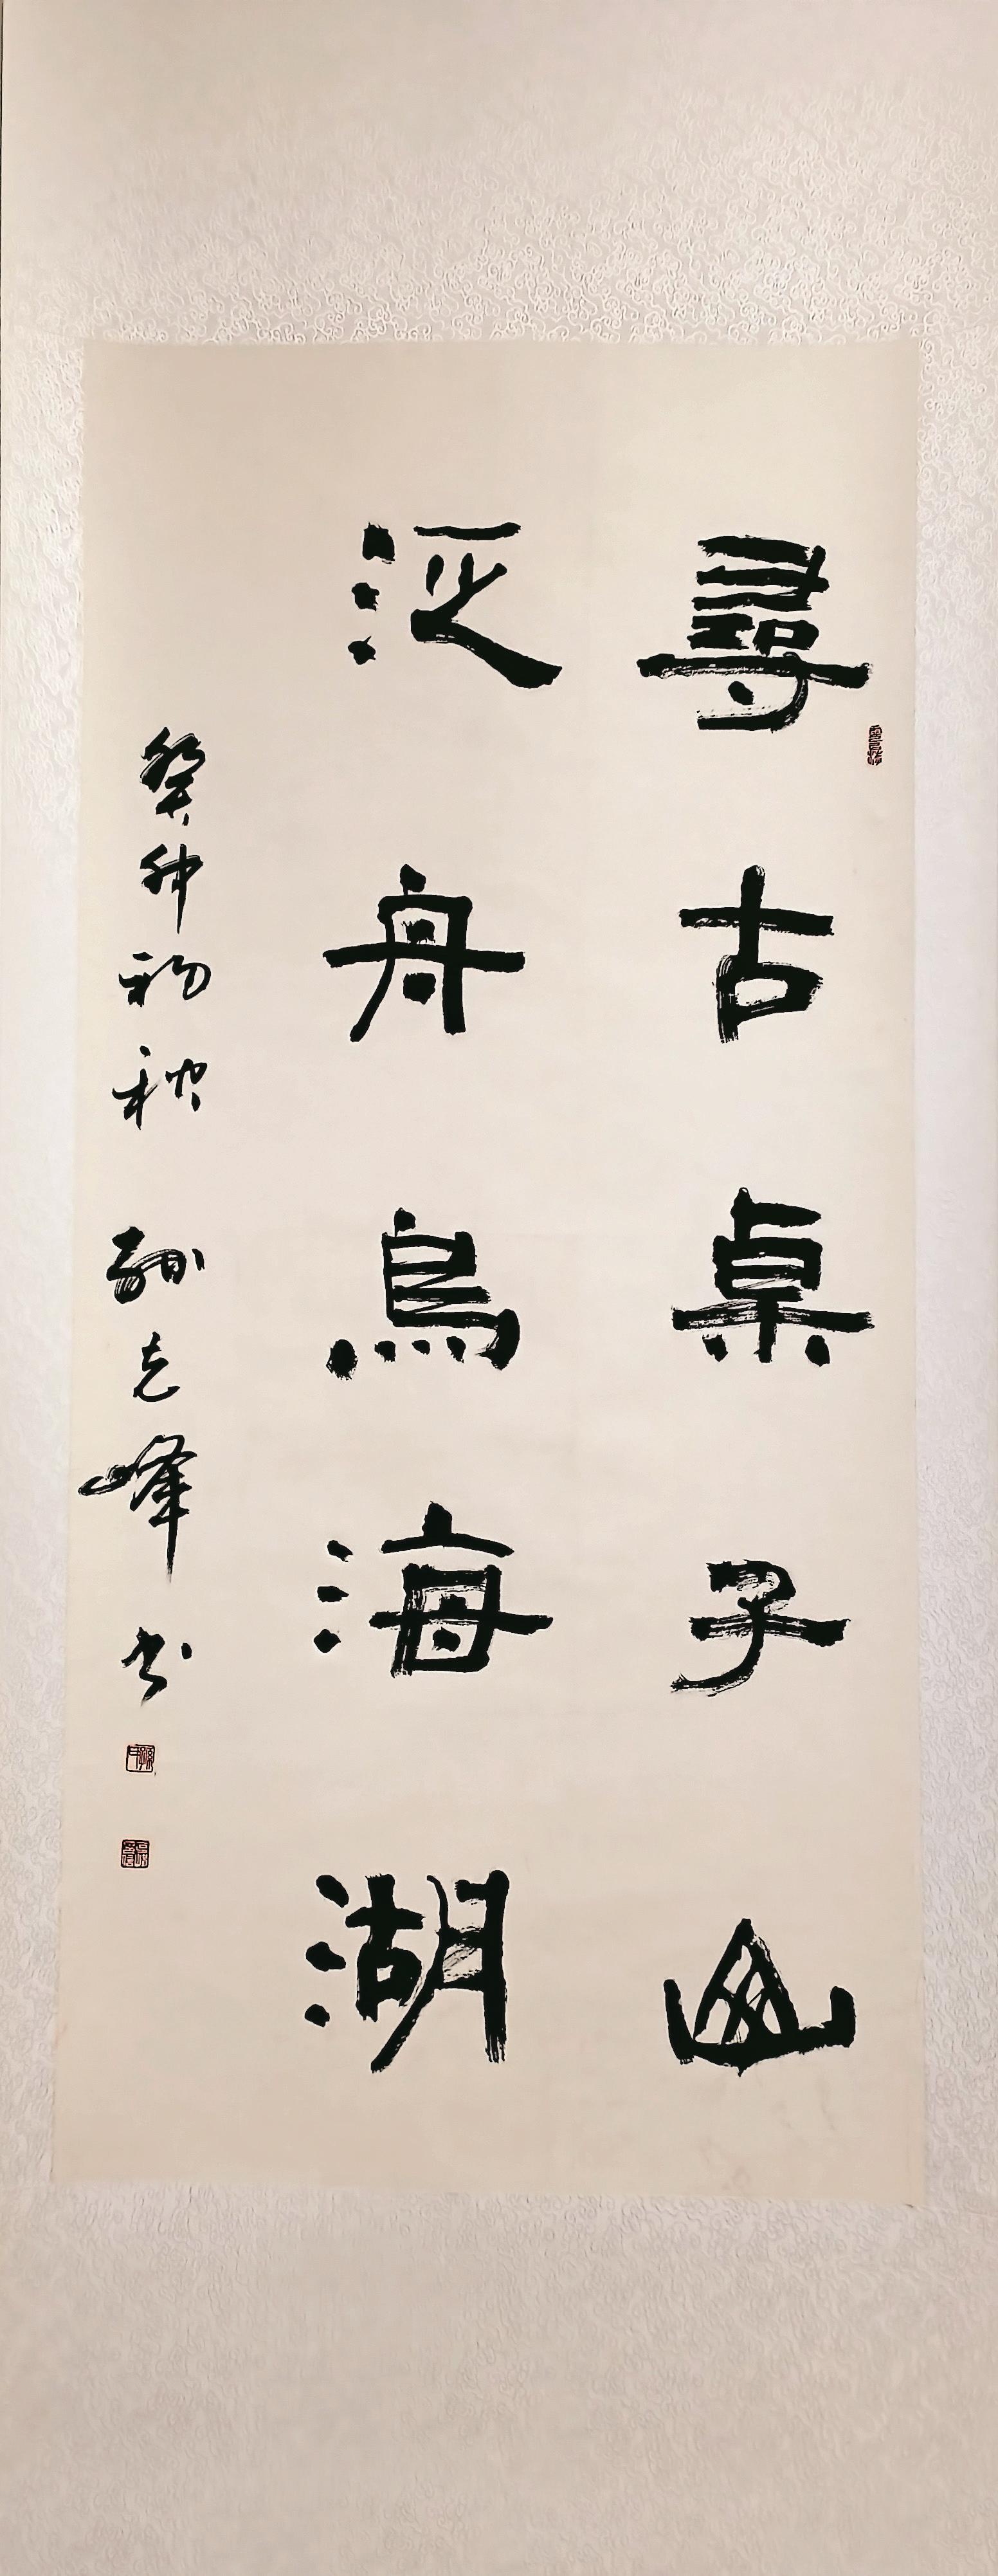 尋古桌子山
泛舟烏海湖
癸卯初秋 孫志峰书